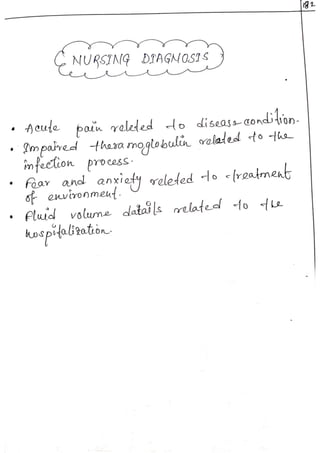 182
NURSING DIAGNOSIS
• Acute pain releted to disease condition.
• Impaired theramoglobulin related to the
infection process.
• Fear and anxiety releted to treatment
of environment.
• Fluid volume datails related to the
hospitalization.